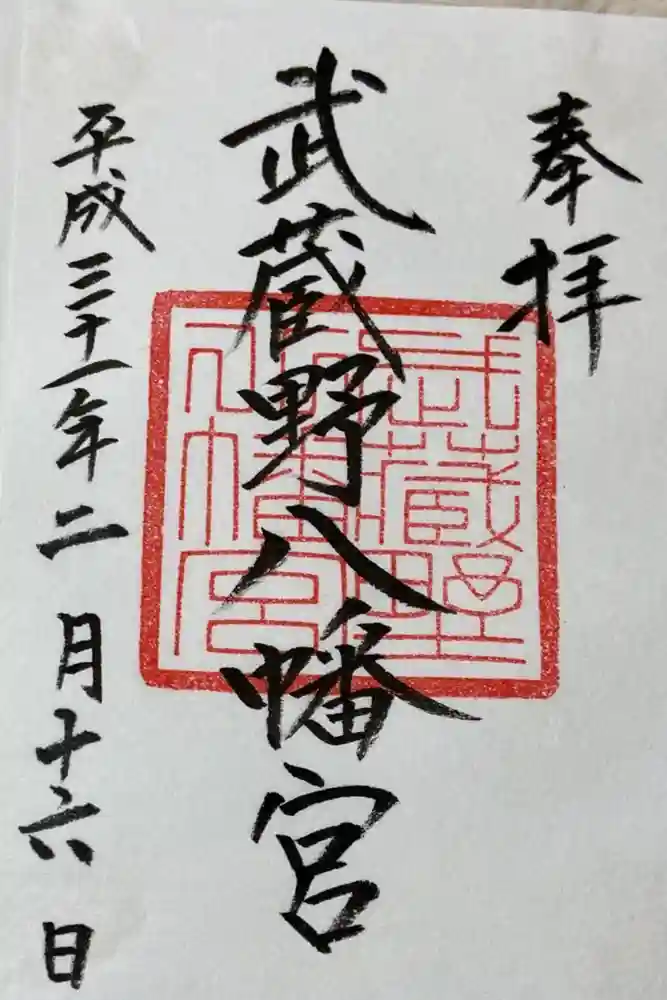 奉拝
武蔵野八幡宮
平成三十一年二月十六日
武蔵野
八幡宮